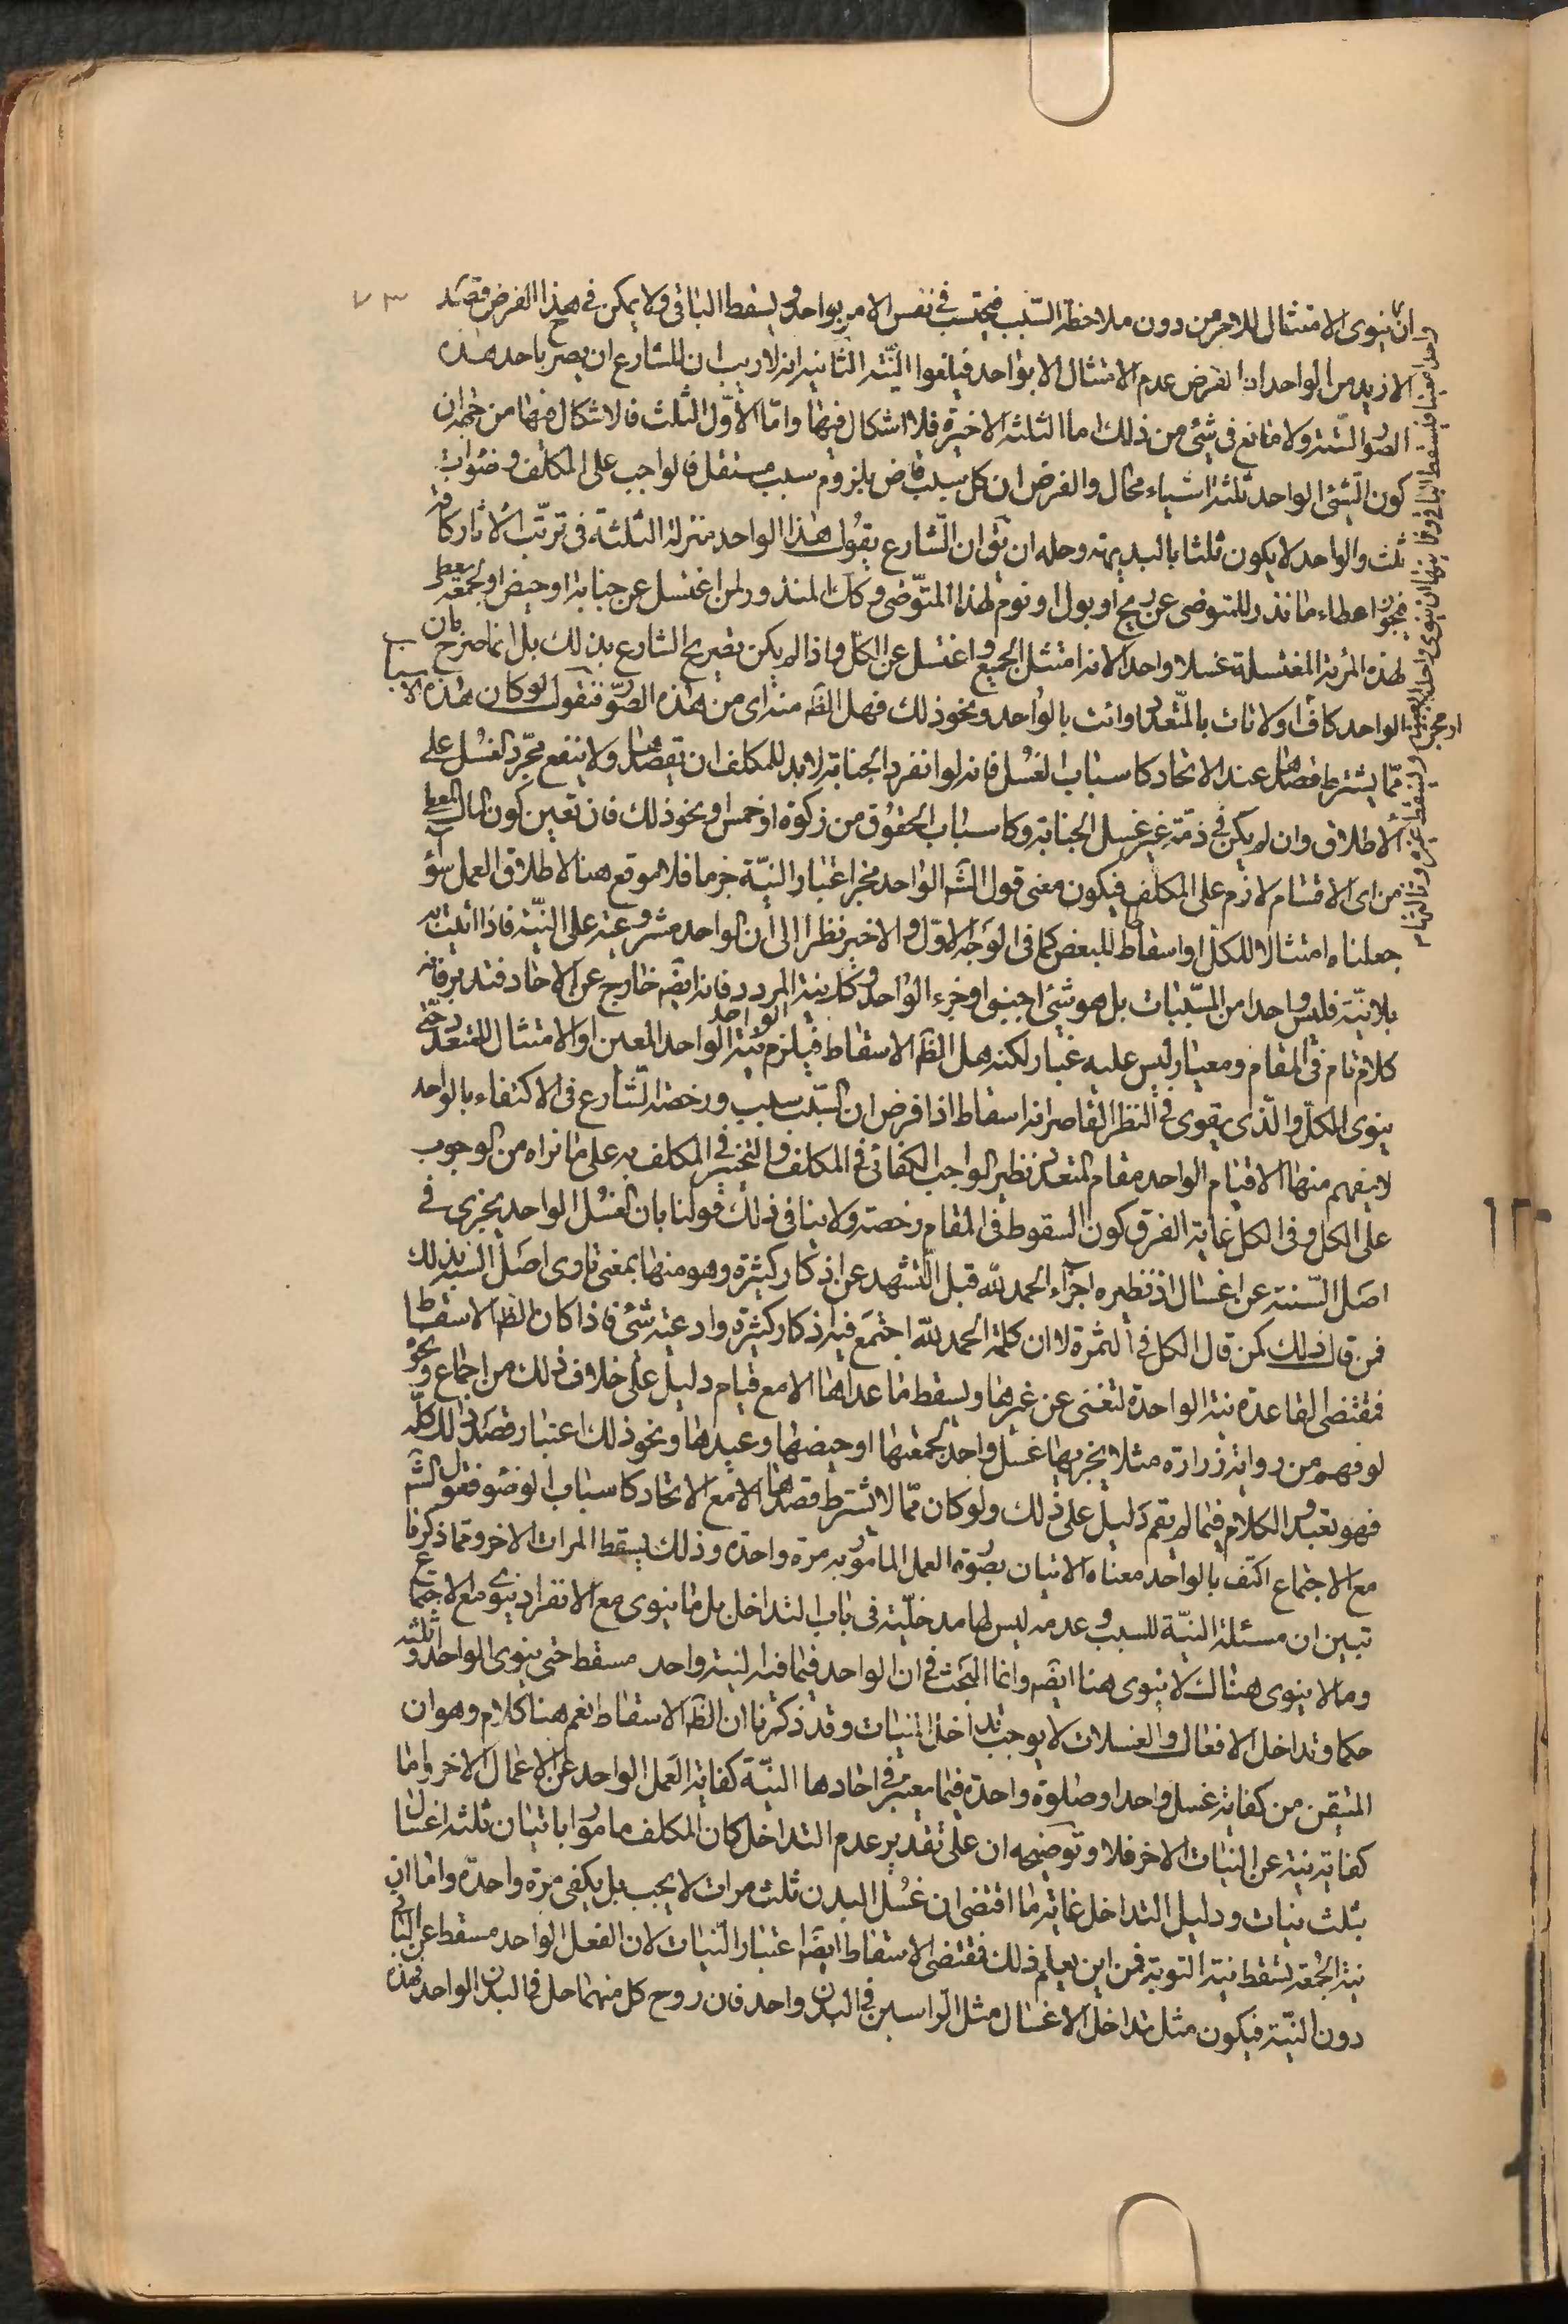 ٧٣
وان ينوى الامتثال للامر من دون ملاحظة السّبب فيحتسب فى نفس الامر بواحد ويسقط الباقى ولا يمكن فى هذا الفرض قصد
الازيد من الواحد اذ الفرض عدم الامتثال الا بواحد فيلغوا النيّة الثانية اذ لا ريب ان للشارع ان يصرح باحد هذه
الصّور السّتة ولا مانع فى شئ من ذلك اما الثلثة الاخيرة فلا اشكال فيها وامّا الأوّل الثلث فالاشكال فيها من جهة ان
كون الشئ الواحد ثلثة اشياء محال والفرض ان كل سبب قاض بلزوم سبب مستقل فالواجب على المكلف وضوات
ثلث والواحد لا يكون ثلثا بالبديهة وحله ان يق ان الشّارع يقول هذا الواحد منزلة الثلثة فى ترتّب الاثار كافة
فيجوز اعطاء ما نذر للمتوضى عن ريح او بول او نوم لهذا المتوّضى وكك المنذور لمن اغتسل عن جنابة او حيض او لجمعة يعطى
لهذه المرئة المغتسلة غسلا واحدا لانه امتثل الجميع واغتسل عن الكلّ واذا لم يكن تصريح الشارع بذلك بل انما صرح بان
الواحد كاف او لا تات بالمتّعدد او ائت بالواحد ونحو ذلك فهل الظّ منه اى من هذه الصّور فنقول لو كان هذه الاسباب
ممّا يشترط قصدها عند الاتحاد كاسباب الغسل فانه لو انفرد الجنابة لا بد للمكلف ان يقصدها ولا ينفع مجّرد الغسل على
الاطلاق وان لم يكن فى ذمّته غير غسل الجنابة وكاسباب الحقوق من زكوة او خمس او نحو ذلك فان تعين كون المال المعطى
من اى الاقسام لازم على المكلف فيكون معنى قول الشّ الواحد مجز اعتبار النيّة جزما فلا موقع هنا لاطلاق العمل سوآء
جعلناه امتثالا للكل او اسقاطا للبعض كما فى الوجه الاوّل والاخير نظرا الى ان الواحد مشروعية على النيّة فاذا اتيت به
بلا نيّة فليس واحدا من المسّببات بل هو شئ اجنبى او جزء الواحد وكك نية المردد فانه ايضّ خارج عن الاحاد فتدبر فانه
كلام تام فى المقام ومعيار ليس عليه غبار لكنه هل الظّ الاسقاط فيلزم نية الواحد الواحد المعين او الامتثال للمتعدد حتى
ينوى الكلّ والّذى يقوى فى النظر القاصر انه اسقاط اذا فرض ان السّبب سبب ورخصة الشّارع فى الاكتفاء بالواحد
لا يفهم منها الا قيام الواحد مقام المتعدد نظير الواجب الكفائى فى المكلف والتخيير فى المكلف به على ما نراه من الوجوب
على الكل وفى الكل غاية الفرق كون السقوط فى المقام رخصة ولا ينافى ذلك قولنا بان الغسل الواحد يجزى فى
اصل السّنة عن اغسال اذ نظيره اجزآء الحمد لله قبل التّشهد عن اذكار كثيرة وهو منها بمعنى تاوى اصل السّنة بذلك
فمن قال ذلك كمن قال الكل فى الثمرة لا ان كلمة الحمد لله اجتمع فيه اذكار كثيرة وادعية شتى فاذا كان الظّ الاسقاط
فمقتضى القاعدة نية الواحدة لتغنى عن غيرها ويسقط ما عداها الا مع قيام دليل على خلاف ذلك من اجماع ونحوه
لو فهم من رواية زرارة مثلا يجزيها غسل واحد لجمعتها او حيضها وعيدها ونحو ذلك اعتبار قصد ذلك كلّه
فهو تعبد والكلام فيما لم يقم دليل على ذلك ولو كان ممّا لا يشترط قصدها الا مع الاتحاد كاسباب الوضوء فقول الشّ
مع الاجتماع اكتف بالواحد معناه الاتيان بصّورة العمل المامور به مرة واحدة وذلك يسقط المرات الاخر وممّا ذكرنا
تبين ان مسئلة النيّة للسبب وعدمه ليس لها مدخليّة فى باب التداخل بل ما ينوى مع الانفراد ينوى مع الاجتماع
وما لا ينوى هناك لا ينوى هنا ايضّ وانما البحث فى ان الواحد فيما فيه نية واحد مسقط حتى ينوى الواحد او ثلثة
حكما وتداخل الافعال والغسلات لا يوجب تداخل النيات وقد ذكرنا ان الظّ الاسقاط نعم هنا كلام وهو ان
المتيقن من كفاية غسل واحد او صلوة واحدة فيما يعتبر فى احادها النيّة كفاية العمل الواحد عن الاعمال الاخر واما
كفاية نية عن النيات الاخر فلا وتوضيحه ان على تقدير عدم التداخل كان المكلف مامورا باتيان ثلثة اغسال
بثلث نيات ودليل التداخل غاية ما اقتضى ان غسل البدن ثلث مرات لا يجب بل يكفى مرة واحدة واما ان
نية الجمعة تسقط نية التوبة فمن اين يعلم ذلك فمقتضى الاسقاط ايضّا اعتبار النيات لان الفعل الواحد مسقط عن الباقى
دون النيّة فيكون مثل تداخل الاغسال مثل الرّاسين فى البدن واحد فان روح كل منهما حل فى البدن الواحد فهذه
واحدا معينا فيسقط الباقى وثانيها ان ينوى واحدا